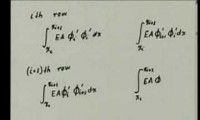 ith row
∫_{x_i}^{x_{i+1}} EA ϕ_i' ϕ_i' dx    ∫_{x_i}^{x_{i+1}} EA ϕ_{i+1}' ϕ_i' dx
(i+1)th row
∫_{x_i}^{x_{i+1}} EA ϕ_i' ϕ_{i+1}' dx    ∫_{x_i}^{x_{i+1}} EA ϕ